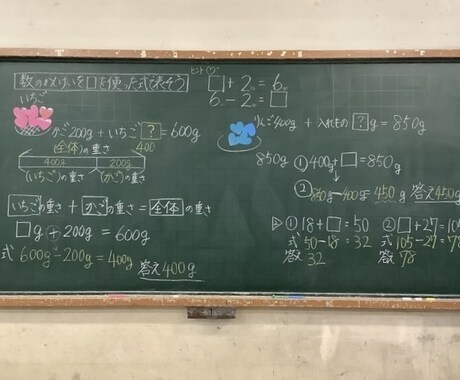 数のかんけいを□を使った式で表そう
いちご
かご200g + いちご ? = 600g
全体の重さ 400
400g 200g
(いちご)の重さ (かご)の重さ
いちごの重さ + かごの重さ = 全体の重さ
□g + 200g = 600g
式 600g - 200g = 400g 答え400g
ヒント♡
□ + 2 = 6
6 - 2 = □
りんご400g + 入れもの ? g = 850g
850g ①400g + □ = 850g
② 850g - 400g = 450g 答え450g
① 18 + □ = 50
式 50 - 18 = 32
答え 32
② □ + 27 = 105
式 105 - 27 = 78
答え 78